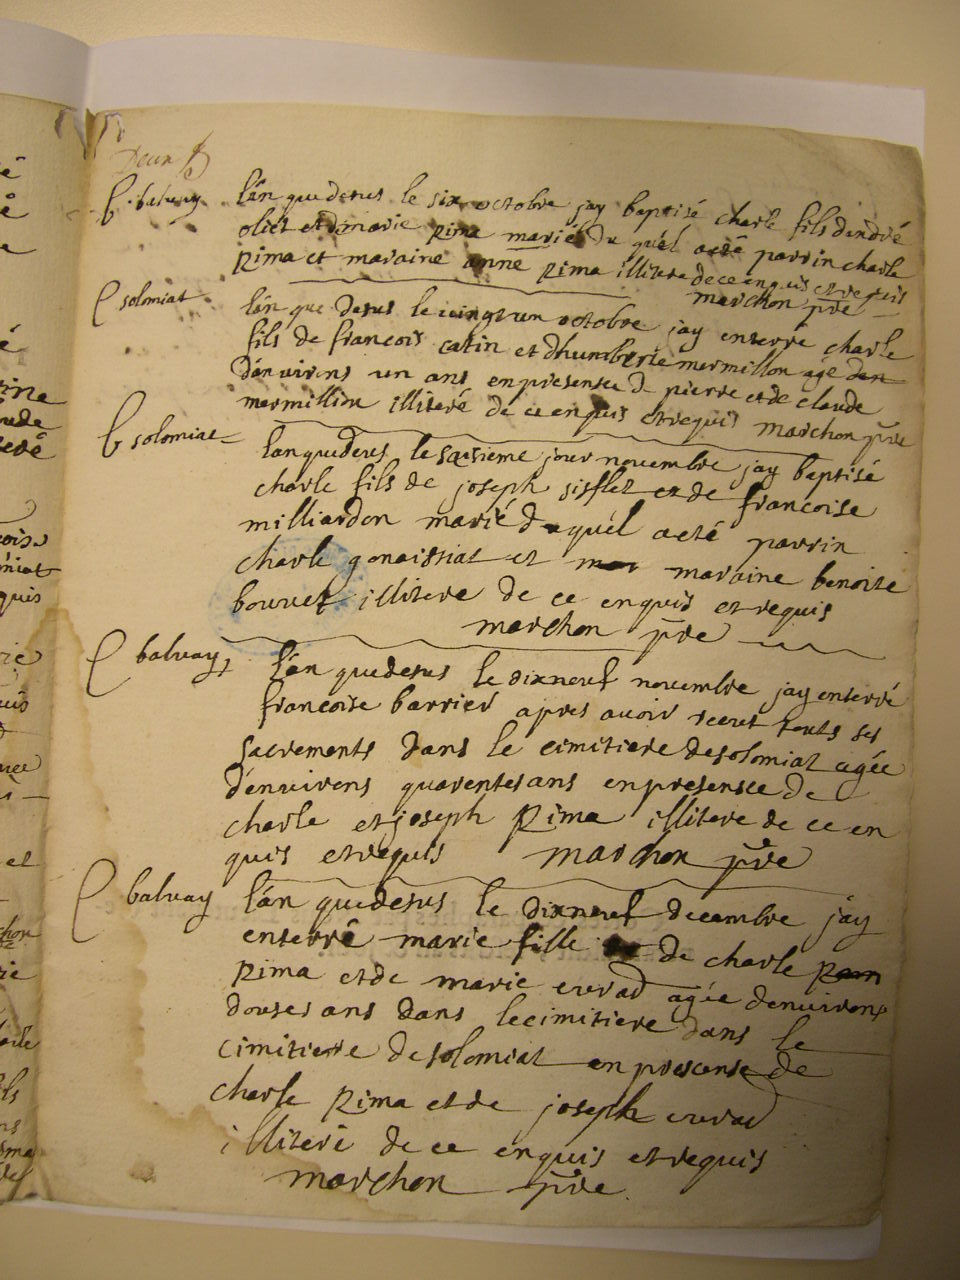 Deux
b. balvay
lán quedesus le six octobre jay baptisé charle fils dandré
oliét et de marie pima mariés du quél acté parrin charle
pima et maraine anne pima illitere de ce enquis et requis
marchon pre
solomiat
lán que desus le vingt un octobre jay enterré charle
fils de francois catin et dhumberte mermillon agé dan
dánvirons un ans en presense de pierre et de claude
mermillion illiteré de ce en quis et requis marchon pre
b solomiat
lan quedesus le sasieme jour novembre jay baptisé
charle fils de joseph sisflet et de francoise
milliardon marié duquél acté parrin
charle gonaissiat et mar maraine benoite
bouvet illitere de ce enquis et requis
marchon pre
balvay
lán quedesus le dixneuf novembre jay enterré
francoise barrier apres avoir receut touts ses
sacrements dans le cimitiere de solomiat agée
dénvirons quarentes ans en presensce de
charle et joseph pima illitere de ce en
quis et requis marchon pre
balvay
lán quedesus le dixneuf decembre jay
enterré marie fille de charle
pima et de marie evrad agée denvirons
douses ans dans lecimitiere dans le
cimitiere de solomiat en presense de
charle pima et de joseph evrad
illiteré de ce enquis et requis
marchon pre